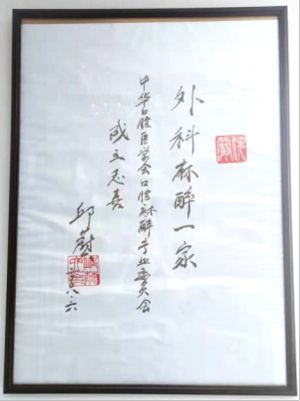 外科麻醉一家
中华口腔医学会口腔麻醉专业委员会
成立志喜
邱蔚
八.六